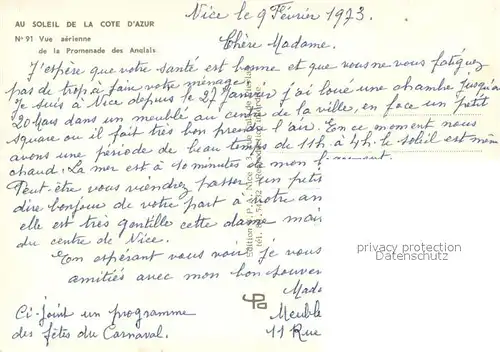 AU SOLEIL DE LA COTE D'AZUR
N° 91 Vue aérienne
de la Promenade des Anglais
Nice le 9 Février 1973.
Chère Madame.
J'espère que votre santé est bonne et que vous ne vous fatiguez
pas de trop à faire votre ménage.
Je suis à Nice depuis le 27 Janvier j'ai loué une chambre jusqu'au
20 Mars dans un meublé au centre de la ville, en face un petit
square ou il fait très bon prendre l'air. En ce moment nous
avons une période de beau temps de 11h. à 4h. le soleil est même
chaud. La mer est à 10 minutes de mon
Peut être vous viendrez passer un petit
dire bonjour de votre part à notre an
elle est très gentille cette dame mais
du centre de Nice.
En espérant vous voir je vous
amitiés avec mon bon souven
Mada
Meuble
11 Rue
Ci-joint un programme
des fêtes du Carnaval.
privacy protection
Datenschutz